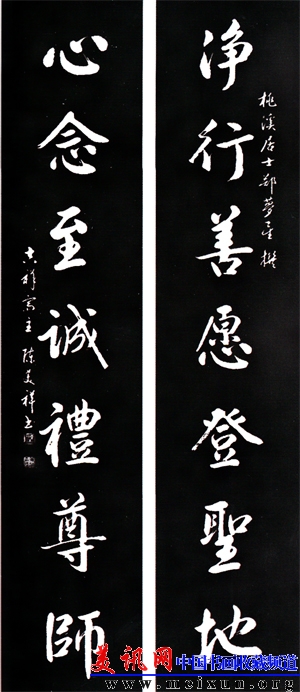 净行善愿登聖地
桃溪居士鄒夢星撰
心念至誠禮尊師
陈美祥书
美讯网
中国书画收藏频道
www.meixun.org